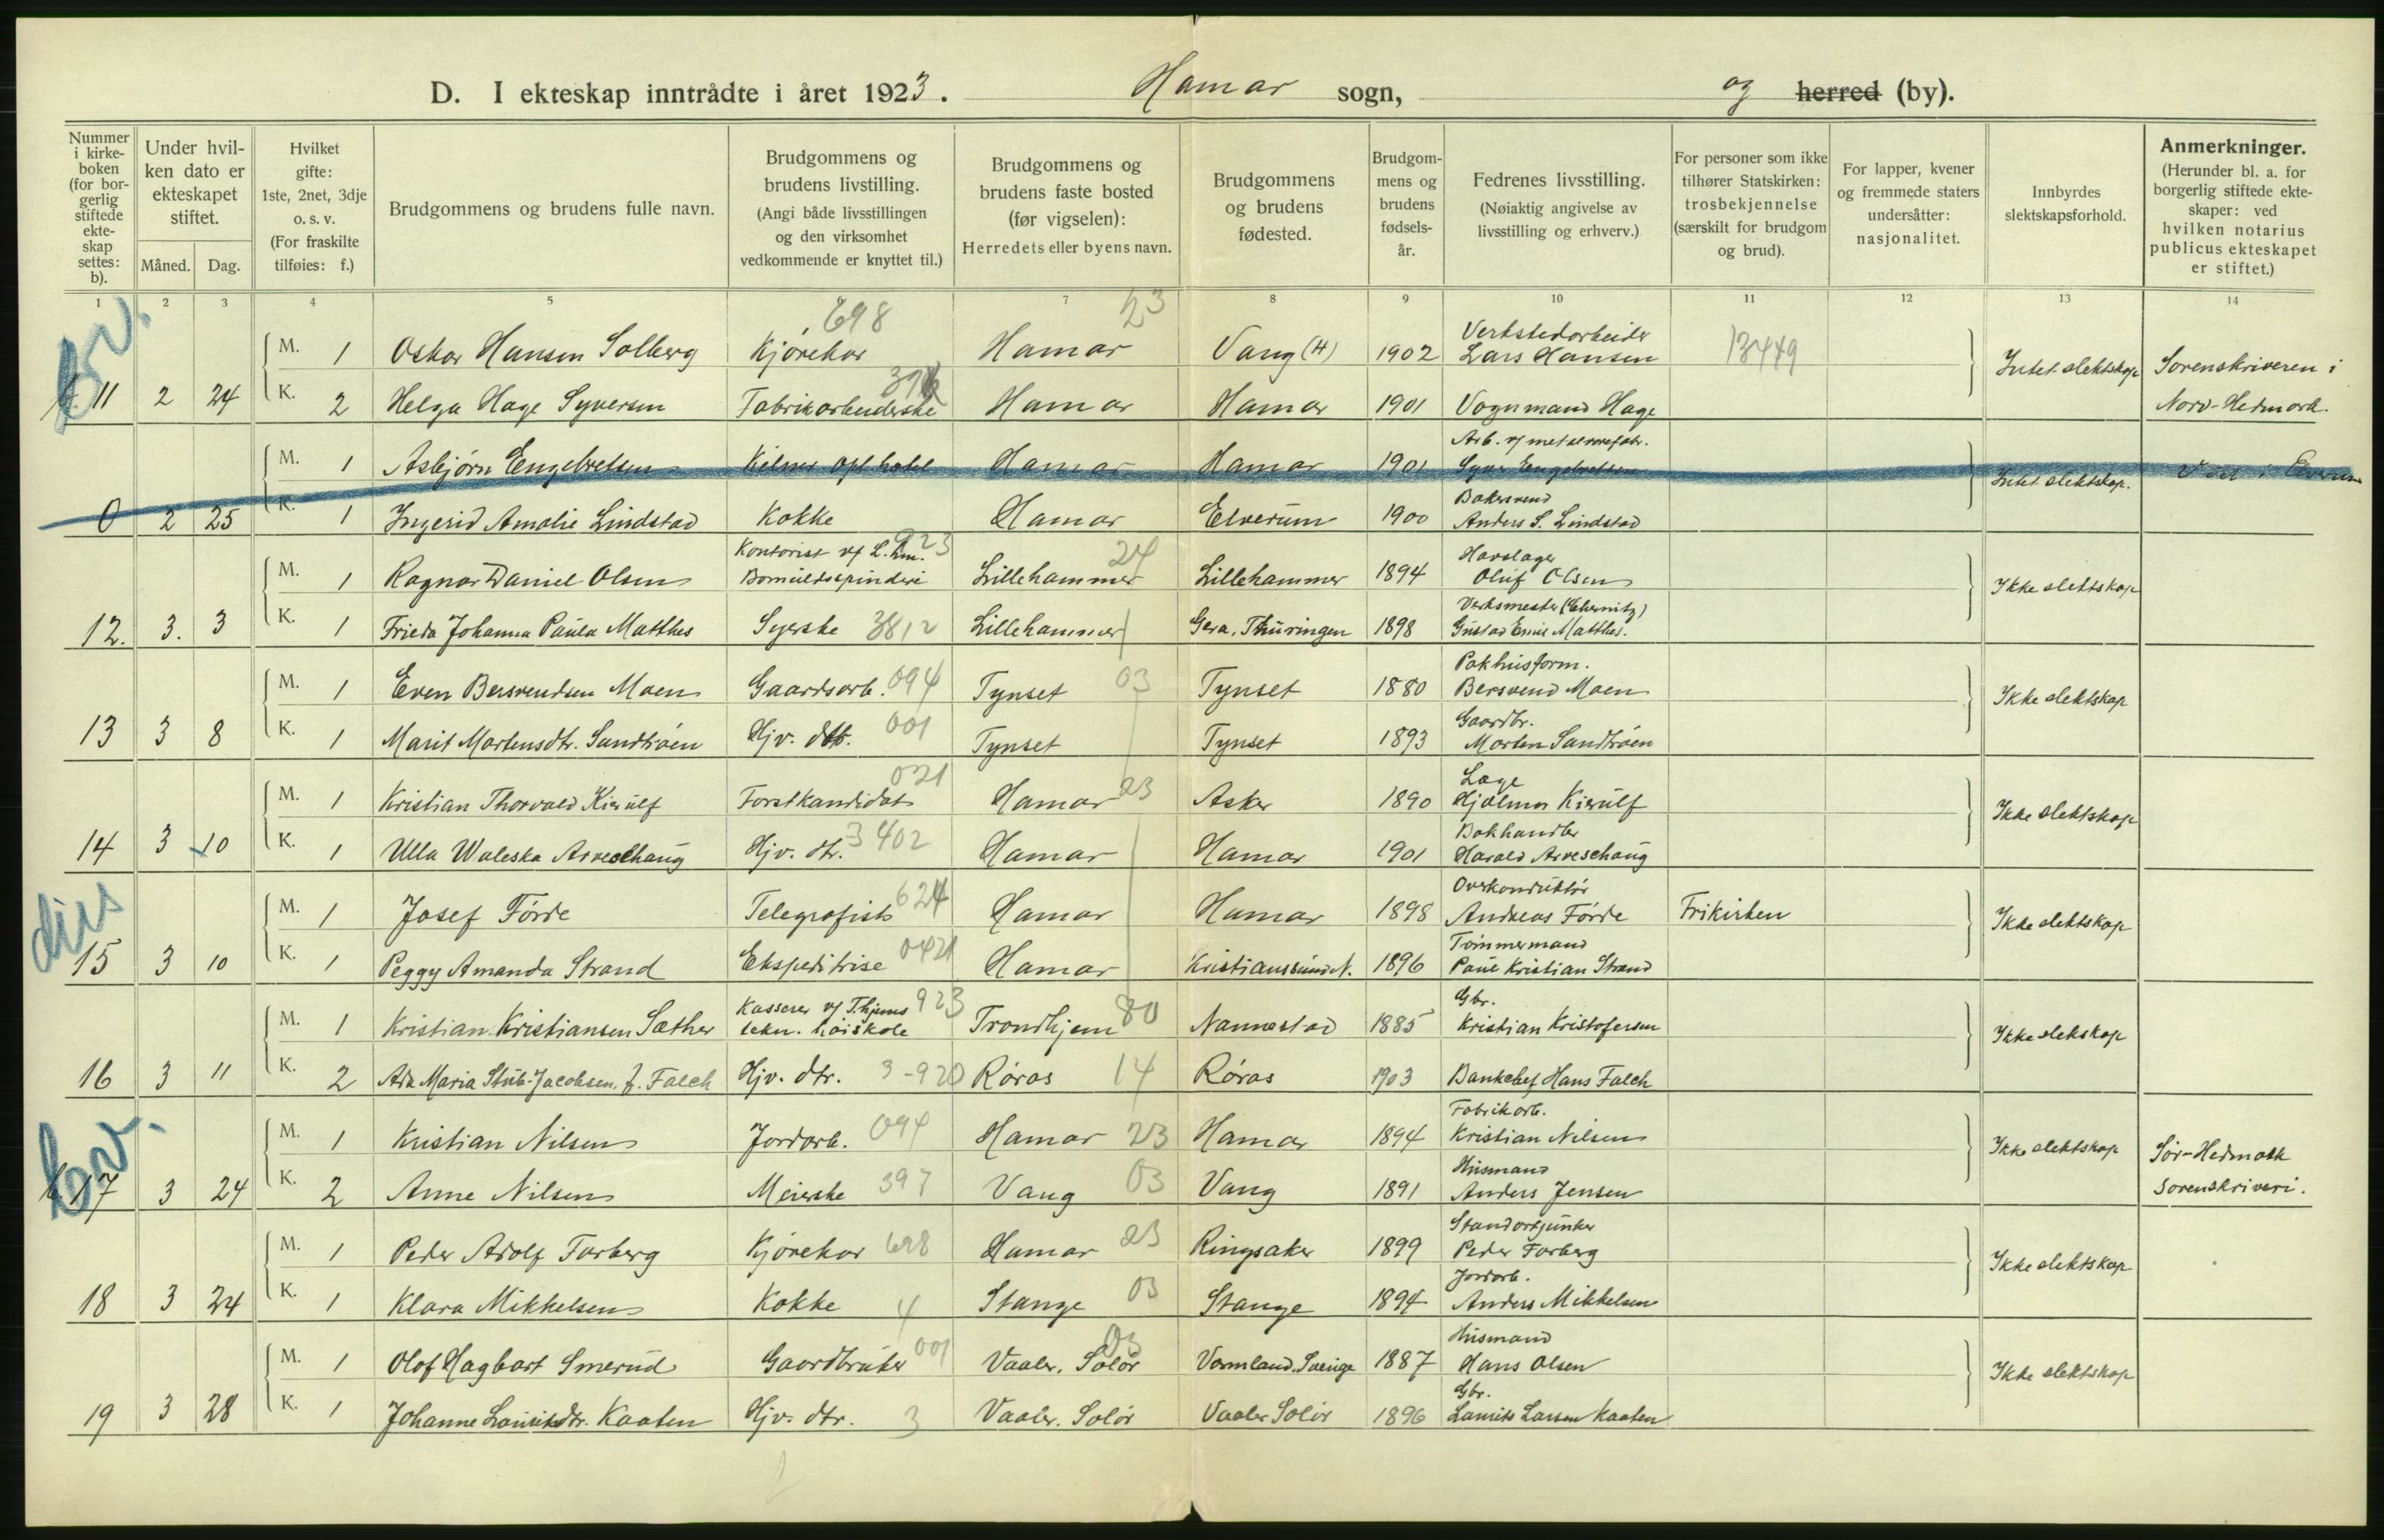 D. I ekteskap inntrådte i året 1923. Hamar sogn, og herred (by).
Nummer i kirkeboken (for borgerlig stiftede ekteskap settes: b).
Under hvilken dato er ekteskapet stiftet.
Måned. Dag.
Hvilket gifte: 1ste, 2net, 3dje o. s. v. (For fraskilte tilføies: f.)
Brudgommens og brudens fulle navn.
Brudgommens og brudens livstilling. (Angi både livsstillingen og den virksomhet vedkommende er knyttet til.)
Brudgommens og brudens faste bosted (før vigselen): Herredets eller byens navn.
Brudgommens og brudens fødested.
Brudgommens og brudens fødselsår.
Fedrenes livsstilling. (Nøiaktig angivelse av livsstilling og erhverv.)
For personer som ikke tilhører Statskirken: trosbekjennelse (særskilt for brudgom og brud).
For lapper, kvener og fremmede staters undersåtter: nasjonalitet.
Innbyrdes slektskapsforhold.
Anmerkninger. (Herunder bl. a. for borgerlig stiftede ekteskaper: ved hvilken notarius publicus ekteskapet er stiftet.)
1 2 3 4 5 6 7 8 9 10 11 12 13 14
698 23
Verkstedarbeider
M. 1 Oskar Hansen Solberg Kjørekar Hamar Vang (H) 1902 Lars Hansen 13449
Intet slektskap Sorenskriveren i
b. 11 2 24 K. 2 Helga Hage Syversen Fabrikarbeiderske Hamar Hamar 1901 Vognmand Hage Nord-Hedmark.
Arb. v/ metalvarefabr.
M. 1 Asbjørn Engebretsen Kelner Opl. hotel Hamar Hamar 1901 Syver Engebretsen
Intet slektskap. Viet i Elverum
Bakersvend
0 2 25 K. 1 Ingerid Amalie Lindstad Kokke Hamar Elverum 1900 Anders S. Lindstad
Kontorist v/ L.hm. 923 24 Havelager
M. 1 Ragnar Daniel Olsen Bomuldsspinderi Lillehammer Lillehammer 1894 Oluf Olsen
Ikke slektskap
Verksmester (Chemnitz)
12. 3. 3 K. 1 Frieda Johanna Paula Matthes Syerske 3812 Lillehammer Gera, Thüringen 1898 Gustav Emil Matthes.
Pakhusform.
M. 1 Even Bersvendsen Moen Gaardsarb. 094 Tynset 03 Tynset 1880 Bersvend Moen
Ikke slektskap
Gaardbr.
13 3 8 K. 1 Marit Mortensdtr. Sandtrøen Hjv. dtr. 001 Tynset Tynset 1893 Morten Sandtrøen
021 Læge
M. 1 Kristian Thorvald Kierulf Forstkandidat Hamar 23 Asker 1890 Hjalmar Kierulf
Ikke slektskap
Bokhandler
14 3 10 K. 1 Ulla Waleska Arveschaug Hjv. dtr. 3402 Hamar Hamar 1901 Harald Arveschaug
diss
Overkonduktør
M. 1 Josef Førde Telegrafist 624 Hamar Hamar 1898 Andreas Førde Frikirken
Ikke slektskap
Tømmermand
15 3 10 K. 1 Peggy Amanda Strand Ekspeditrise 0421 Hamar Kristianssund N. 1896 Paul Kristian Strand
Kasserer v/ T.hjems 923 Gbr.
M. 1 Kristian Kristiansen Sæther tekn. høiskole Trondhjem 80 Nannestad 1885 Kristian Kristofersen
Ikke slekskap
16 3 11 K. 2 Ada Maria Stub-Jacobsen, f. Falch Hjv. dtr. 3-920 Røros 14 Røros 1903 Bankchef Hans Falch
bv.
Fabrikarb.
M. 1 Kristian Nilsen Jordarb. 094 Hamar 23 Hamar 1894 Kristian Nilsen
Ikke slektskap Sør-Hedmark
Husmand
b. 17 3 24 K. 2 Anne Nilsen Meierske 397 Vang 03 Vang 1891 Anders Jensen sorenskriveri.
Standartjunker
M. 1 Peder Adolf Farberg Kjørekar 698 Hamar 23 Ringsaker 1899 Peder Farberg
Ikke slektskap
Jordarb.
18 3 24 K. 1 Klara Mikkelsen Kokke 4 Stange 03 Stange 1894 Anders Mikkelsen
Husmand
M. 1 Olof Hagbart Smerud Gaardbruker 001 Vaaler, Solør 03 Varmland, Sverige 1887 Hans Olsen
Ikke slektskap
Gbr.
19 3 28 K. 1 Johanne Lauritsdtr. Kaaten Hjv. dtr. 3 Vaaler, Solør Vaaler Solør 1896 Laurits Larsen Kaaten